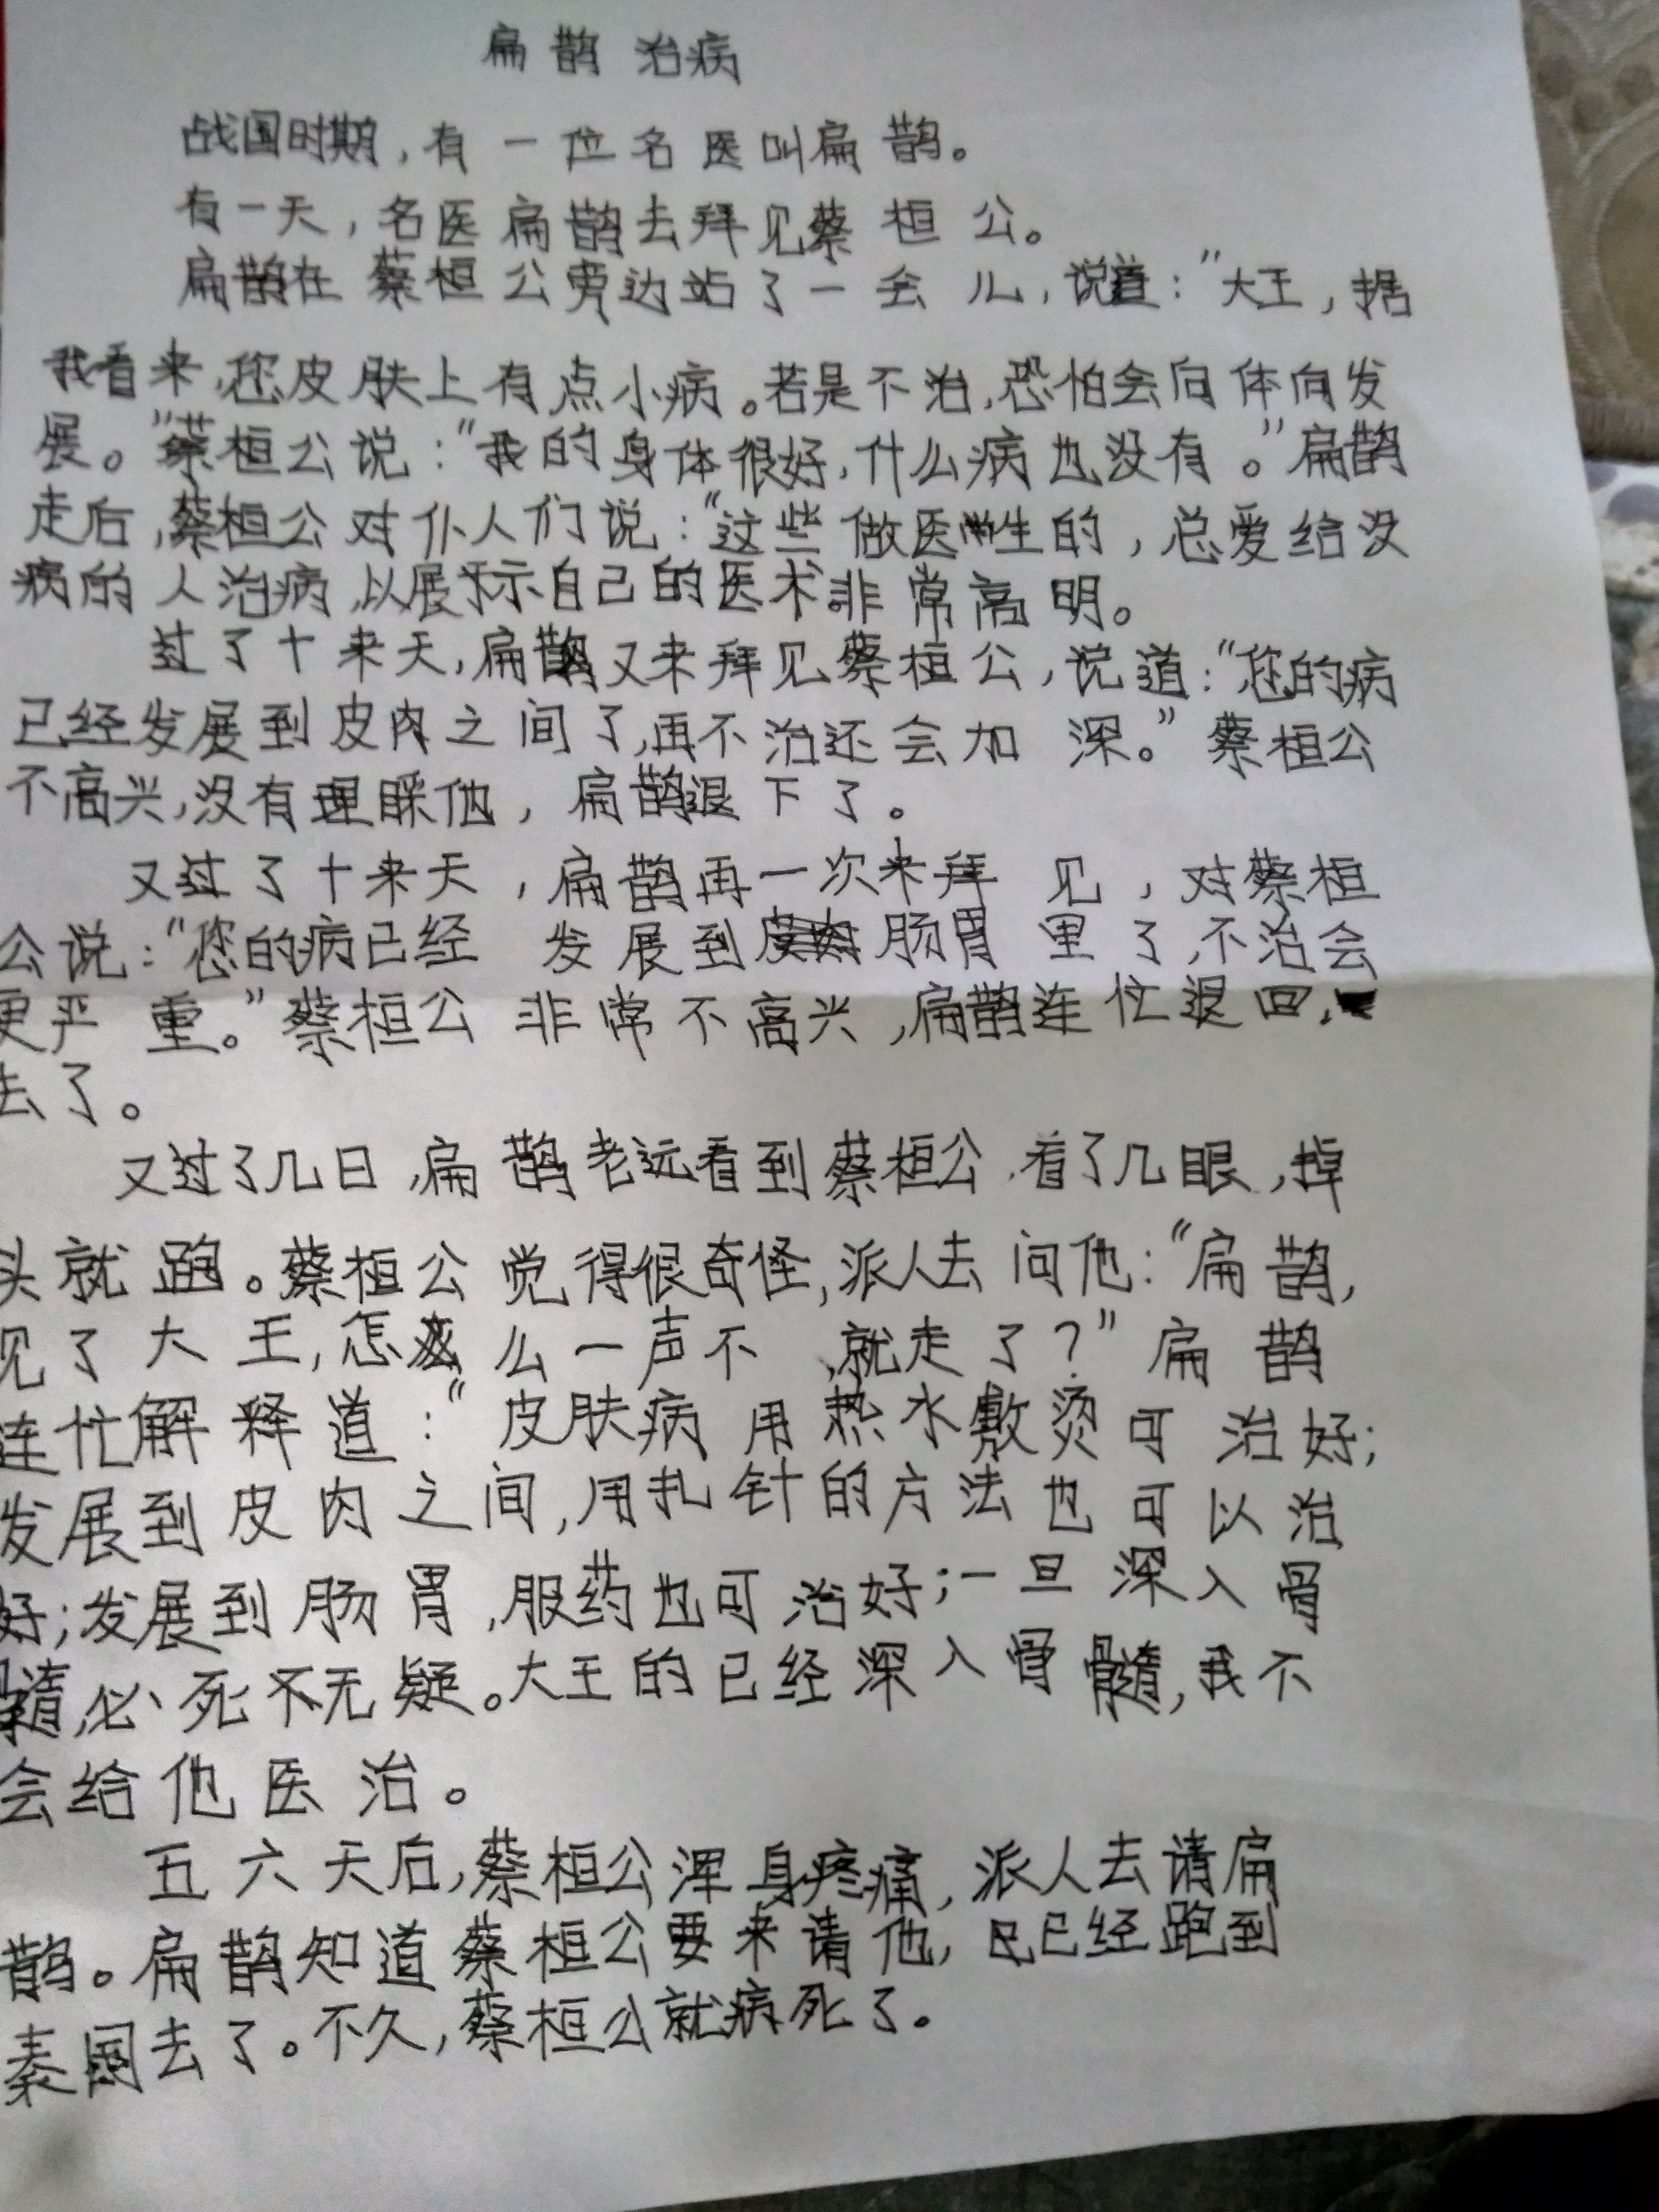 扁鹊治病
战国时期,有一位名医叫扁鹊。
有一天,名医扁鹊去拜见蔡桓公。
扁鹊在蔡桓公旁边站了一会儿,说道:"大王,据
我看来,您皮肤上有点小病。若是不治,恐怕会向体向发
展。"蔡桓公说:"我的身体很好,什么病也没有。"扁鹊
走后,蔡桓公对仆人们说:"这些做医生的,总爱给没
病的人治病,以展示自己的医术非常高明。
过了十来天,扁鹊又来拜见蔡桓公,说道:"您的病
已经发展到皮肉之间了,再不治还会加深。"蔡桓公
不高兴,没有理睬他,扁鹊退下了。
又过了十来天,扁鹊再一次来拜见,对蔡桓
公说:"您的病已经发展到肠胃里了,不治会
更严重。"蔡桓公非常不高兴,扁鹊连忙退回,
去了。
又过了几日,扁鹊老远看到蔡桓公,看了几眼,掉
头就跑。蔡桓公觉得很奇怪,派人去问他:"扁鹊,
见了大王,怎么一声不,就走了?"扁鹊
连忙解释道:"皮肤病用热水敷烫可治好;
发展到皮肉之间,用扎针的方法也可以治
好;发展到肠胃,服药也可治好;一旦深入骨
髓,必死不无疑。大王的已经深入骨髓,我不
会给他医治。
五六天后,蔡桓公浑身疼痛,派人去请扁
鹊。扁鹊知道蔡桓公要来请他,已经跑到
秦国去了。不久,蔡桓公就病死了。